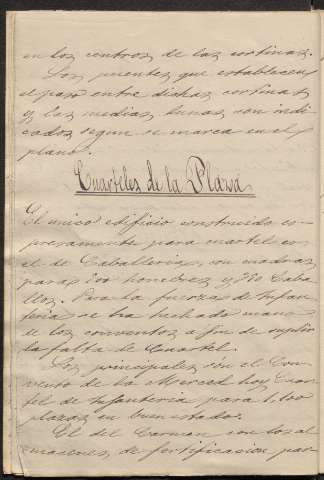 en los centros de las cortinas.
Los puentes que establecen
el paso entre dichas cortinas
y las medias lunas, son indi-
cados segun se marca en el
plano.
Cuarteles de la Plaza
El unico edificio construido es-
presamente para cuartel es
el de Caballeria, con cuadras
para 500 hombres y 380 Caba-
llos. Para la fuerza de Infan-
teria se ha hechado mano
de los conventos a fin de suplir
la falta de Cuartel.
Los principales son el Con-
vento de la Merced hoy Cuar-
tel de Infanteria para 1.100
plazas en buen estado.
El del Carmen con los al-
macenes, de fortificacion, par-